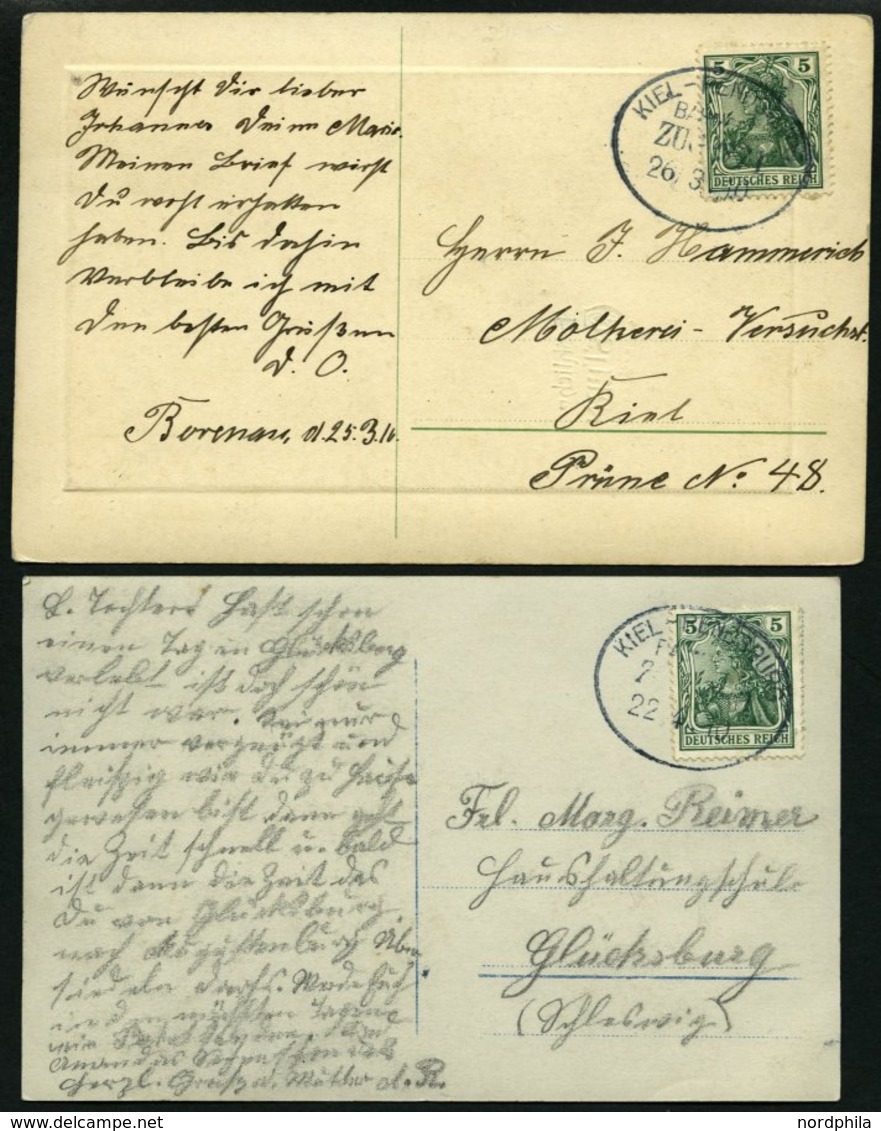 Wünscht Dir lieber
Johannes Deine Marie.
Meinen Brief wirst
Du wohl erhalten
haben. Bis dahin
verbleibe ich mit
den besten Grüßen
D. O.
Borenau, d. 25.3.10.
5 5
DEUTSCHES REICH
KIEL-
BAHN
ZUG
26 3 10
Herrn J. Hammerich
Molkerei-Versuchst.
Kiel
Prüne No 48.
L. Tochter! Hast schon
einen Tag in Glücksbg
verlebt ist doch schön
nicht war. Sei nur
immer vergnügt und
fleißig wie Du zu Hause
gewesen bist dann geht
die Zeit schnell u. bald
ist dann die Zeit das
Du von Glücksburg
nach Augustenburg
in den nächsten Tagen
Herzl. Gruß d. Mutter
5 5
DEUTSCHES REICH
KIEL-FLENSBURG
22 4 10
Frl. Marg. Reimer
Haushaltungschule
Glücksburg
(Schleswig)
www.nordphila.com